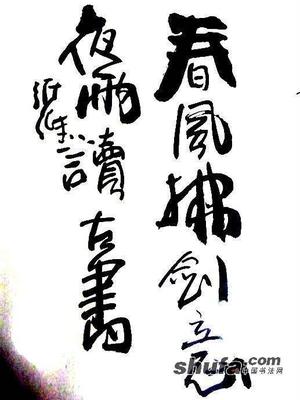 春風拂剑立
夜雨讀古書
shufa.com
中国书法网